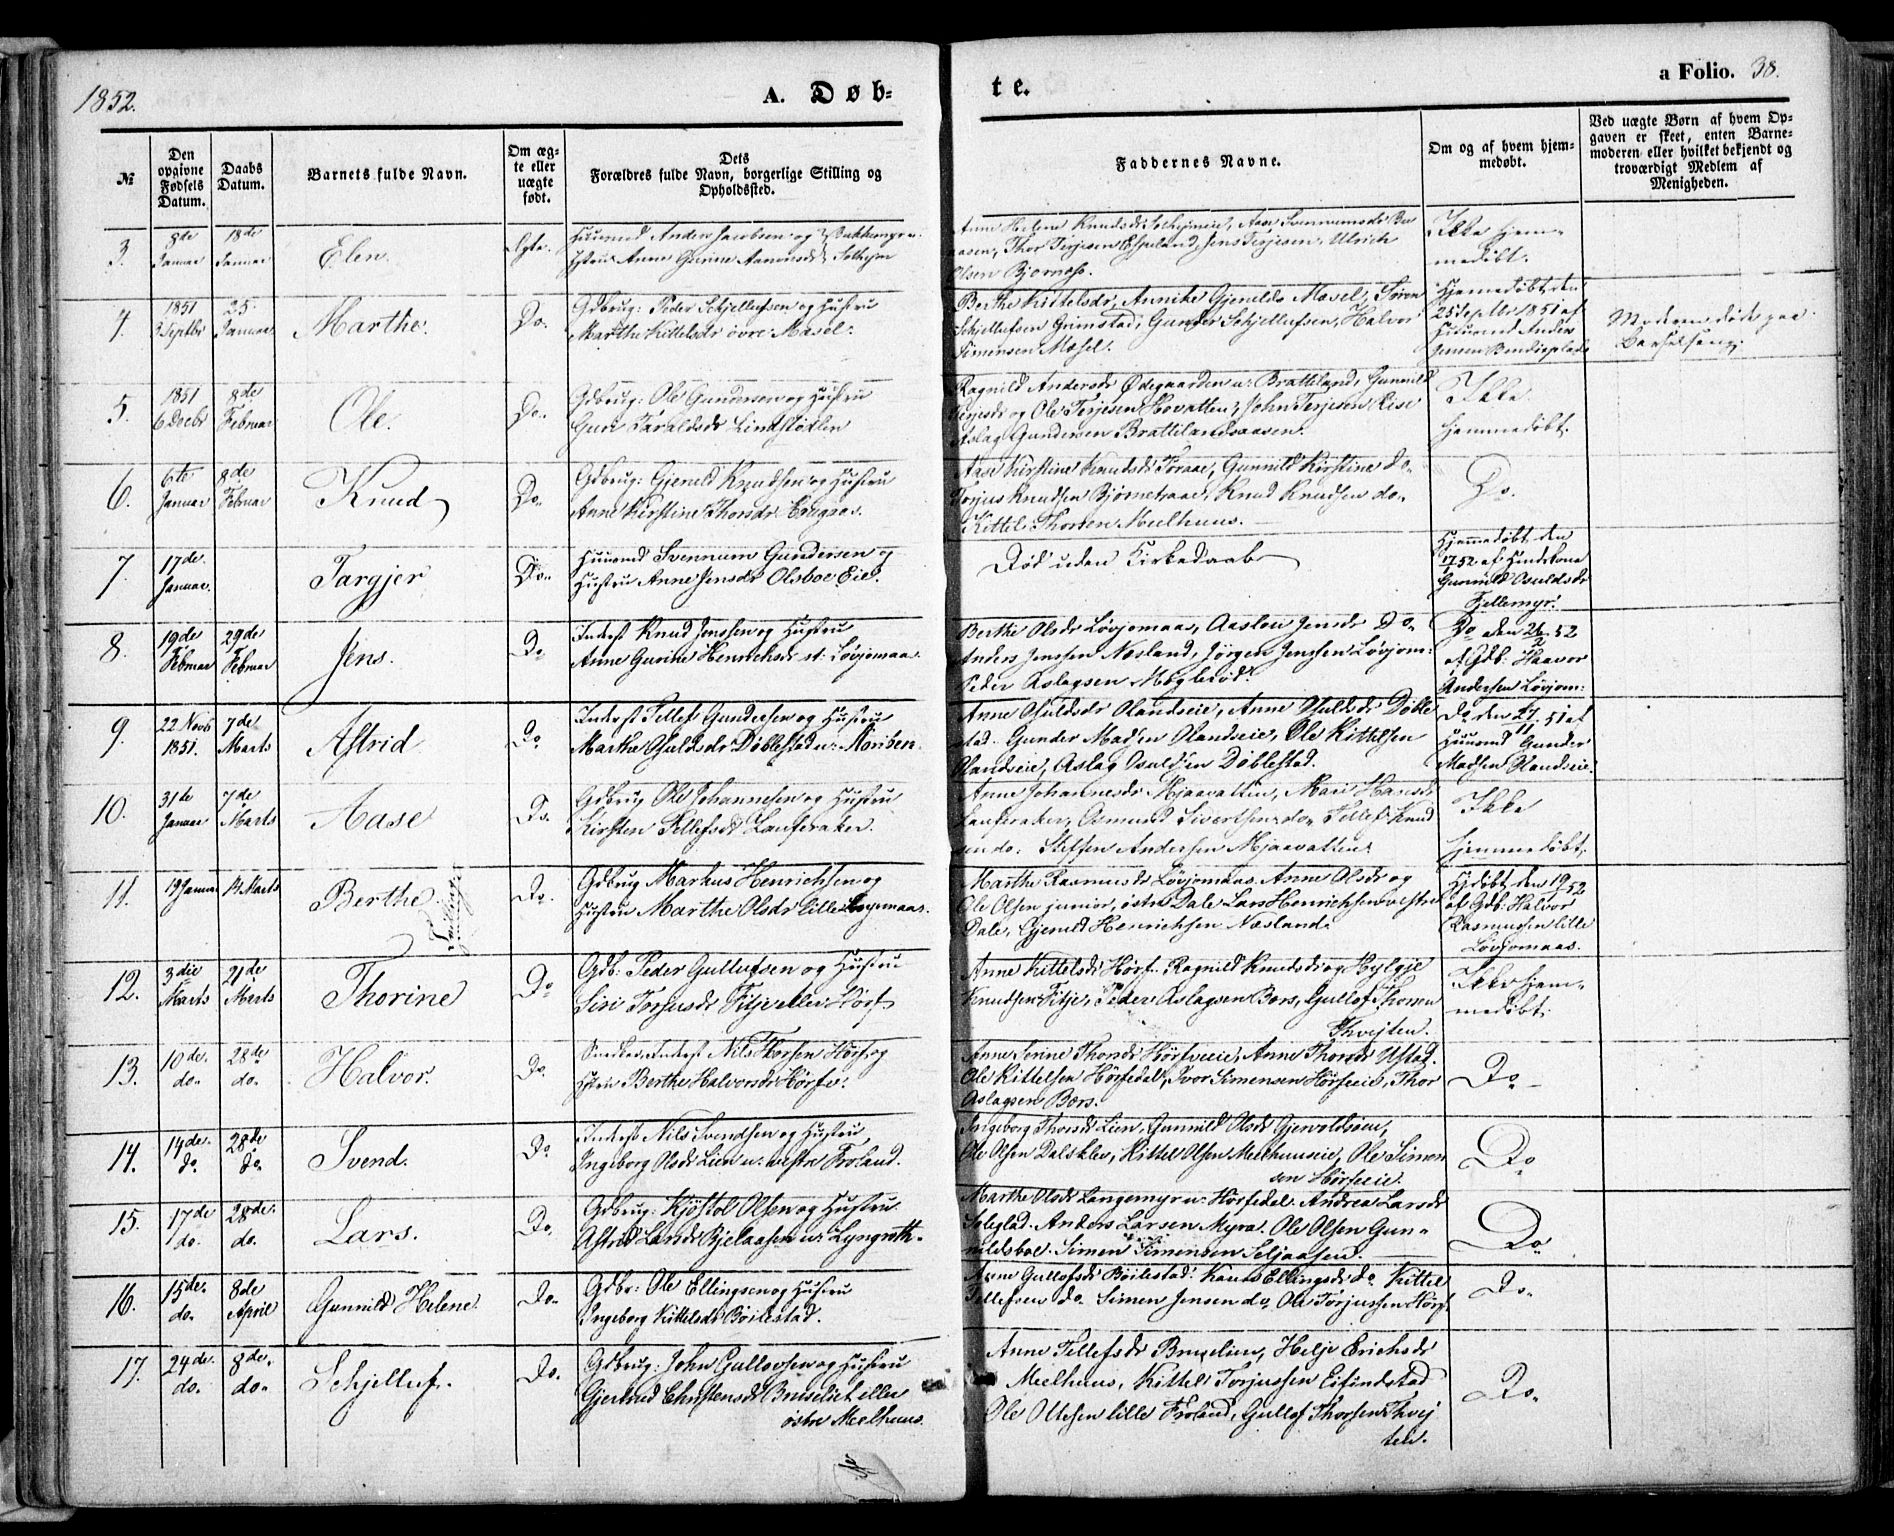 1852.
A. Døb-
te.
a Folio. 38.
№
Den opgivne Fødsels Datum.
Daabs Datum.
Barnets fulde Navn.
Om ægte eller uægte født.
Dets Forældres fulde Navn, borgerlige Stilling og Opholdssted.
Faddernes Navne.
Om og af hvem hjemmedøbt.
Ved uægte Børn af hvem Opgaven er skeet, enten Barnemoderen eller hvilket bekjendt og troværdigt Medlem af Menigheden.
3.
8de Januar
18de Januar
Elen
Ægte.
Huusmd Anders Jacobsen og
Hstru Anne Gurine Aanonsdr
Anne Helene Knudsdr
Thor Terjesen Espeland, Jens Terjesen, Ulrich
Olsen Bjornaas.
Ikke hjem-
medøbt.
4.
1851
3 Septbr
25. Januar
Marthe.
Do.
Gdbrug: Peder Schjellufsen og Hustru
Marthe Kittelsdr övre Mæsel.
Berthe Kittelsdr, Annike Gjerulds Mæsel, Søren
Schjellufsen Grimstad, Gunder Schjellufsen, Halvor
Simensen Mæsel.
Hjemmedöbt den
25 Septbr 1851 af
Huusmd Anders
Moderen död paa
Barselseng.
5.
1851
6 Decbr
8de Februar
Ole.
Do.
Gdbrug: Ole Gundersen og Hustru
Guri Taraldsdr Lindstødlen
Ragnild Andersdr Ødegaarden u: Brattland, Gunnild
Terjesdr og Ole Terjesen Hovatten, John Terjesen Rise
Aslag Gundersen Brattelandsaasen.
Ikke
hjemmedöbt.
6.
6te Januar
8de Februar
Knud
Do.
Gdbrug: Gjeruld Knudsen og Hustru
Anne Kirstine Thorsdr
Aase Kirstine Knudsdr Toraae, Gunnild Kirstine do.
Torjus Knudsen Bjørnetraae, Knud Knudsen do.
Kittel Thorsen Mælhuus.
Do.
7.
17de Januar.
Targjer
Do.
Huusmd Svennum Gundersen og
Hustru Anne Jensdr Olsboe Eie.
Død uden Kirkedaab
Hjemmedøbt den
17/1 52 af
Gunnild Osuldsdr
Fjellemyr.
8.
19de Februar
29de Februar
Jens.
Do
Inderst Knud Jensen og Hustru
Anne Gurine Henrichsdr st: Løvjomaas.
Berthe Olsdr Løvjomaas, Aaslou Jensdr Do.
Anders Jensen Næsland, Jørgen Jensen Løvjom:
Peder Aslagsen Møglestöd.
Do den 26/2 52
af Gdb: Haavor
Andersen Løvjom:
9.
22 Novb 1851.
7de Marts
Astrid
Do
Inderst Tellef Gundersen og Hustru
Marthe Osuldsdr Døblestad u:
Anne Osuldsdr Olandseie, Anne Osuldsdr Døble
stad. Gunder Madsen Olandseie, Ole Kittelsen
Olandseie, Aslag Osuldsen Döblestad.
Do den 27/11 51 af
Huusmd Gunder
Madsen Olandseie.
10.
31te Januar
7de Marts
Aase
Do.
Gdbrug Ole Johannesen og Hustru
Kirsten Tellefsdr Lauveraker.
Anne Johannesdr Mjaavatten, Mari Hansdr
Lauveraker, Osmund Sivertsen do. Tellef Knud
sen do. Steffen Andersen Mjaavatten.
Ikke
hjemmedöbt.
11.
19 Januar
14 Marts
Berthe.
Do.
Gdbrug Markus Henrichsen og
Hustru Marthe Olsdr lille Løvjomaas.
Marthe Rasmusdr Løvjomaas. Anne Olsdr og
Ole Olsen junior, östre Dale Lars Henrichsen vestre
Dale, Gjeruld Henrichsen Næsland.
Hjdøbt den 19/1 52
af Gdb: Halvor
Rasmussen lille
Løvjomaas.
12.
3die Marts
21de Marts
Thorine
Do
Gdb: Peder Gullufsen og Hustru
Siri Torjusdr Fitje eller Hørf
Anne Kittelsdr Hørf. Ragnild Knudsdr og Hylje
Knudsen Fitje, Peder Aslagsen Bers, Gullof Thorsen
Thvejten.
Ikke hjem-
medøbt.
13.
10de do.
28de do.
Halvor.
Do.
Nils Thorsen Hørf og
Hstru Berthe Halvorsdr Hørf.
Anne Serine Thorsdr Hørfveie, Anne Thorsdr Ustad.
Ole Kittelsen Hörfedal, Ivor Simensen Hörfeie, Thor
Aslagsen Bærs.
Do
14.
14de do
28de do.
Svend.
Do
Inderst Nils Svendsen og Hustru
Ingeborg Olsdr Lien u: vestre Froland.
Ingeborg Thorsdr Lien, Gunnild Olsdr
Ole Olsen Dalsklev, Kittel Olsen Mælhuuseie, Ole Simon
sen Hörfeie.
Do
15.
17de do.
28de. do.
Lars.
Do.
Gdbrug: Kjøstol Olsen og Hustru
Astrid Larsdr Bjelaasen u: Lyngroth.
Marthe Olsdr Langemyr u: Hörfedal. Andrea Larsdr
Soleglad. Anders Larsen Myra. Ole Olsen Gun-
nildsboe. Simen Simensen Seljaasen.
Do
16.
15de. do.
8de April
Gunnild Helene.
Do.
Gdbr: Ole Ellingsen og Hustru
Ingeborg Kittelsdr Böilestad.
Anne Gullofsdr Böilestad. Karen Ellingsdr do Kittel
Tellefsen do. Simen Jensen do. Ole Torjussen Hörf.
Do.
17.
24de. do.
8de. do.
Schjelluf.
Do.
Gdbrug: John Gullovsen og Hustru
Gjertrud Christensdr Bruseliet eller
östre Mælhuus.
Anne Tellefsdr Bruselien, Helje Erichsdr
Mælhuus, Kittel Torjussen Eifundstad
Ole Ottesen lille Froland, Gullof Thorsen Thvej
ten.
Do.